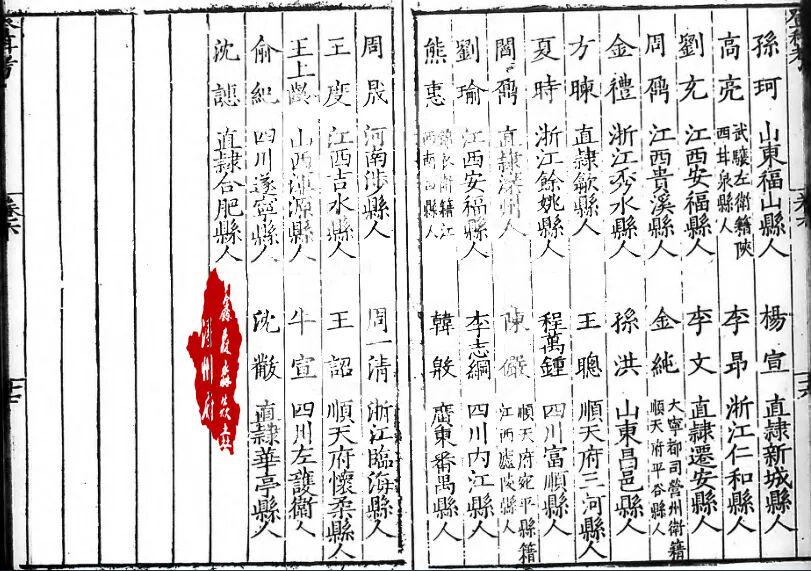 孫珂 山東福山縣人
楊宣 直隸新城縣人
高亮 武驤左衛籍陝西甘泉縣人
李昂 浙江仁和縣人
劉充 江西安福縣人
李文 直隸遷安縣人
周鴈 江西貴溪縣人
金純 大寧都司營州衛籍順天府平谷縣人
金禮 浙江秀水縣人
孫洪 山東昌邑縣人
方暕 直隸歙縣人
王聰 順天府三河縣人
夏時 浙江餘姚縣人
程萬鍾 四川富順縣人
閻鼐 直隸深州人
陳儼 順天府宛平縣籍江西廬陵縣人
劉瑜 江西安福縣人
李志綱 四川內江縣人
熊惠 錦衣衛籍江西 縣人
韓殷 廣東番禺縣人
周晟 河南涉縣人
周一清 浙江臨海縣人
王度 江西吉水縣人
王詔 順天府懷柔縣人
王上齡 山西渾源縣人
牛宣 四川左護衛人
俞紀 四川遂寧縣人
沈黻 直隸華亭縣人
沈譓 直隸合肥縣人
卷六